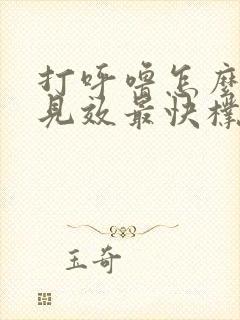 打呼噜怎麼
見效最快樸
玉奇